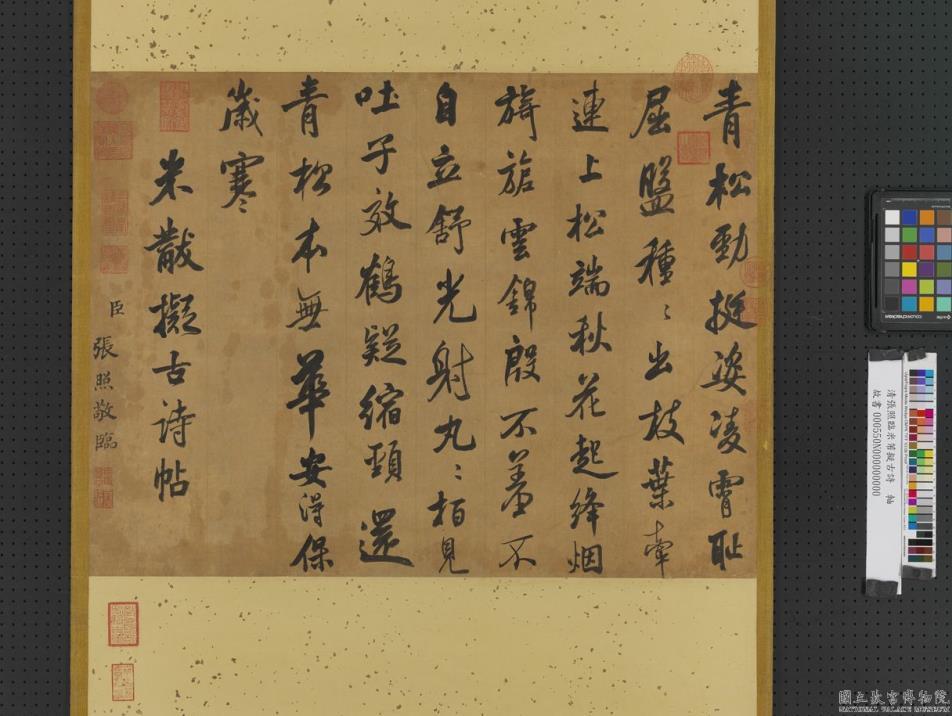 青松勁挺姿凌霄恥
屈盤種〻出枝葉牽
連上松端秋花起絳烟
旖旎雲錦殷不羞不
自立舒光射丸〻柏見
吐子效鶴疑縮頸還
青松本無華安得保
歲寒
米黻擬古詩帖
臣張照敬臨
清張照臨米芾擬古詩 軸
故書000550N000000000
國立故宮博物院
NATIONAL PALACE MUSEUM